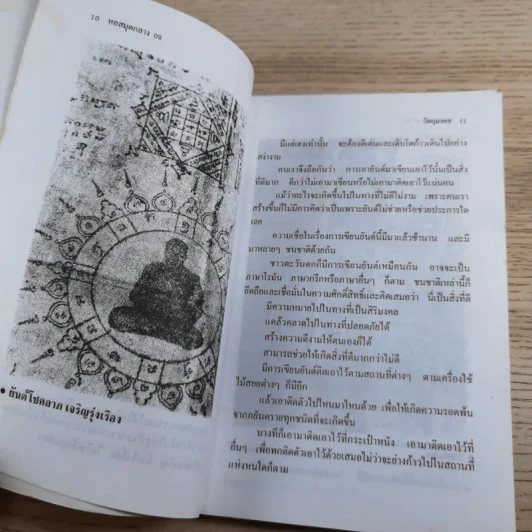 10 หอสมุดกลาง 09
● ยันต์โชคลาภ เจริญรุ่งเรือง
วัตถุมงคล 11
มีแต่เฮงเท่านั้น จะต้องดีเด่นและเติบโตก้าวเดินไปอย่าง
สง่างาม
คนเราจึงถือกันว่า การเอายันต์มาเขียนเอาไว้นั้นเป็นสิ่ง
ที่ดีมาก ดีกว่าไม่เอามาเขียนหรือไม่เอามาติดเอาไว้แน่นคน
แม้ว่าอะไรจะเกิดขึ้นไปในทางที่ไม่ดีไม่งาม เพราะคนเรา
สร้างขึ้นก็ไม่มีการคิดว่าเป็นเพราะยันต์ไม่ช่วยหรือช่วยประการใด
เลย
ความเชื่อในเรื่องการเขียนยันต์นี้มีมาแล้วช้านาน และมี
มาหลายๆ ชนชาติด้วยกัน
ชาวตะวันตกก็มีการเขียนยันต์เหมือนกัน อาจจะเป็น
ภาษาโรมัน ภาษากรีกหรือภาษาอื่นๆ ก็ตาม ชนชาติเหล่านี้ก็
ยึดถือและเชื่อมั่นในความศักดิ์สิทธิ์และคิดเสมอว่า นี่เป็นสิ่งที่ดี
มีความหมายไปในทางที่เป็นสิริมงคล
แคล้วคลาดไปในทางที่ปลอดภัยได้
สร้างความดีงามให้ตนเองก็ได้
สามารถช่วยให้เกิดสิ่งที่ดีมากกว่าไม่ดี
มีการเขียนยันต์ติดเอาไว้ตามสถานที่ต่างๆ ตามเครื่องใช้
ไม้สอยต่างๆ ก็มีอีก
แล้วเอาติดตัวไปไหนมาไหนด้วย เพื่อให้เกิดความรอดพ้น
จากภยันตรายทุกชนิดที่จะเกิดขึ้น
บางทีก็เอามาติดเอาไว้ที่กระเป๋าหนัง เอามาติดเอาไว้ที่
อื่นๆ เพื่อพกติดตัวเอาไว้ด้วยเสมอไม่ว่าจะย่างก้าวไปในสถานที่
แห่งหนใดก็ตาม